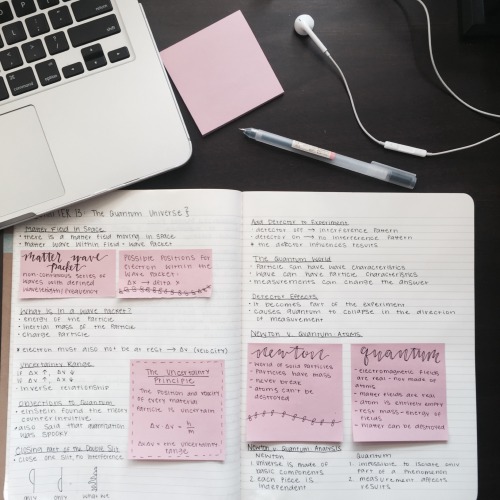 The Quantum Universe
Matter Field in Space
• there is a matter field moving in space
• matter wave within field = wave packet
matter wave
packet
non-continuous series of
waves with defined
wavelength/frequency
Possible positions for
electron within the
wave packet
Δx → delta x
What is in a wave packet?
• energy of the particle
• inertial mass of the particle
• charge particle
* electron must also not be at rest → Δv (velocity)
Uncertainty Range
if Δx ↑, Δv ↓
if Δv ↑, Δx ↓
• inverse relationship
The Uncertainty
Principle
The position and velocity
of every material
particle is uncertain
Δx·Δv = h/m
Δx Δv = the uncertainty
range
Objections to Quantum
• einstein found the theory
counterintuitive
• also said that
was spooky
Closing part of the Double Slit
• close one slit, no interference
Add Detector to Experiment
• detector off → interference pattern
• detector on → no interference pattern
* the detector influences results
The Quantum World
• particle can have wave characteristics
• wave can have particle characteristics
• measurements can change the answer
Detector Effects
• it becomes part of the experiment
• causes quantum to collapse in the direction
of measurement
Newton v. Quantum Atoms
newton
• world of solid particles
• particles have mass
• never break
• atoms can't be
destroyed
quantum
• electromagnetic fields
are real - not made of
atoms
• matter fields are real
• atom is entirely empty
• rest mass = energy of
fields
• matter can be destroyed
Newton v. Quantum Analysis
Newton
1. universe is made of
basic components
2. each piece is
independent
Quantum
1. impossible to isolate only
part of a phenomena
2. measurement affects
results